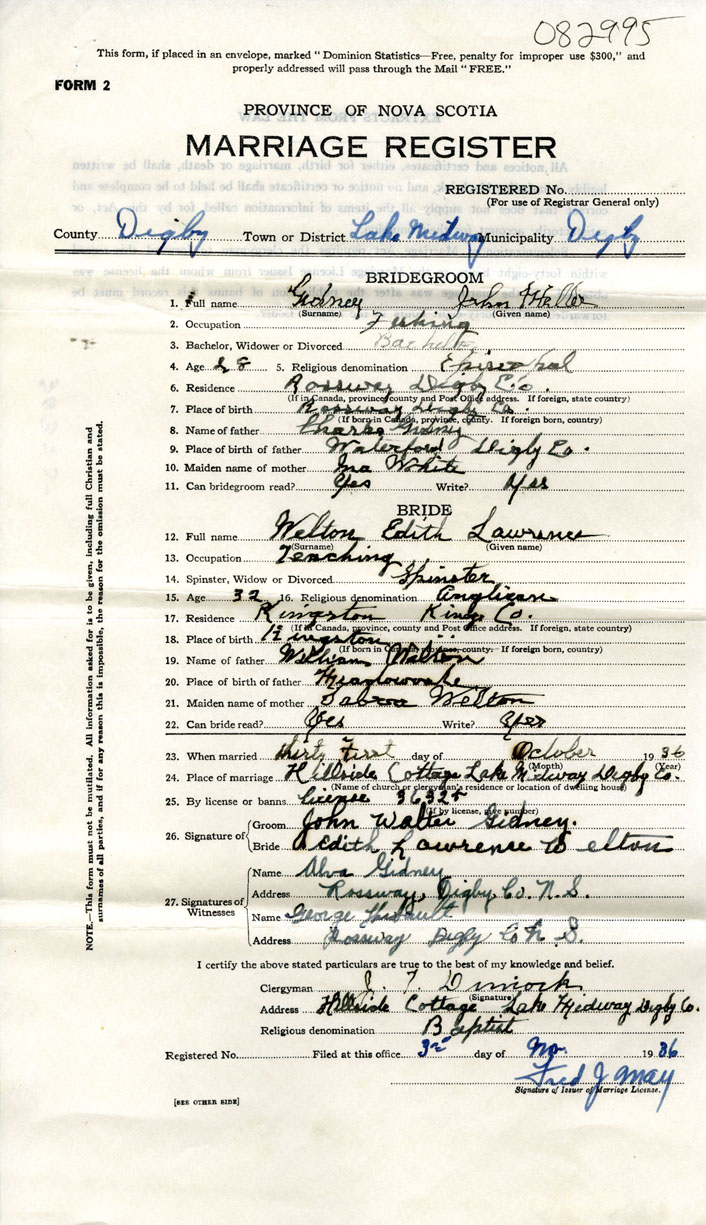 082995
This form, if placed in an envelope, marked "Dominion Statistics—Free, penalty for improper use $300," and
properly addressed will pass through the Mail "FREE."
FORM 2
PROVINCE OF NOVA SCOTIA
MARRIAGE REGISTER
REGISTERED No.
(For use of Registrar General only)
County Digby Town or District Lake Midway Municipality Digby
BRIDEGROOM
1. Full name Gidney John Walter
(Surname) (Given name)
2. Occupation Fishing
3. Bachelor, Widower or Divorced Bachelor
4. Age 28 5. Religious denomination Episcopal
6. Residence Rossway Digby Co.
(If in Canada, province, county and Post Office address. If foreign, state country)
7. Place of birth Rossway Digby Co.
(If born in Canada, province, county. If foreign, born country)
8. Name of father Charles Gidney
9. Place of birth of father Waterford Digby Co.
10. Maiden name of mother Ina White
11. Can bridegroom read? Yes Write? Yes
BRIDE
12. Full name Welton Edith Lawrence
(Surname) (Given name)
13. Occupation Teaching
14. Spinster, Widow or Divorced Spinster
15. Age 32 16. Religious denomination Anglican
17. Residence Kingston Kings Co.
(If in Canada, province, county and Post Office address. If foreign, state country)
18. Place of birth Kingston
(If born in Canada, province, county. If foreign, born country)
19. Name of father William Welton
20. Place of birth of father
21. Maiden name of mother Welton
22. Can bride read? Yes Write? Yes
23. When married thirty First day of October 1936
(Month) (Year)
24. Place of marriage Hillside Cottage Lake Midway Digby Co.
(Name of church or clergyman's residence or location of dwelling house)
25. By license or banns license 36325
(If by license, give number)
26. Signature of Groom John Walter Gidney.
Bride Edith Lawrence Welton
27. Signatures of Witnesses
Name Alva Gidney
Address Rossway, Digby Co. N.S.
Name George Thibault
Address Rossway Digby Co N.S.
I certify the above stated particulars are true to the best of my knowledge and belief.
Clergyman J. F. Dimock
(Signature)
Address Hillside Cottage Lake Midway Digby Co.
Religious denomination Baptist
Registered No. Filed at this office 3rd day of Nov. 1936
Fred J May
Signature of Issuer of Marriage License.
[SEE OTHER SIDE]
NOTE.—This form must not be mutilated. All information asked for is to be given, including full Christian and
surnames of all parties, and if for any reason this is impossible, the reason for the omission must be stated.